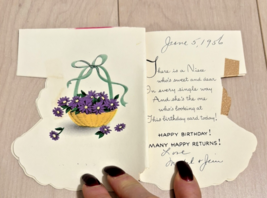 June 5, 1956
There is a Niece
who's sweet and dear
In every single way
And she's the one
who's looking at
This birthday card today!
HAPPY BIRTHDAY!
MANY HAPPY RETURNS!
Love